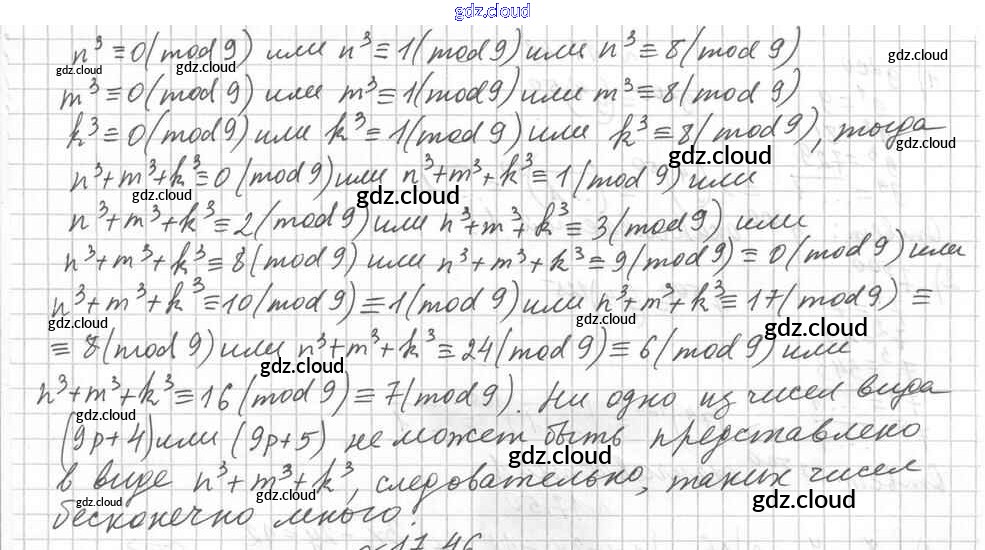 gdz.cloud
n³ ≡ 0(mod 9) или n³ ≡ 1(mod 9) или n³ ≡ 8(mod 9)
gdz.cloud gdz.cloud gdz.cloud
m³ ≡ 0(mod 9) или m³ ≡ 1(mod 9) или m³ ≡ 8(mod 9)
k³ ≡ 0(mod 9) или k³ ≡ 1(mod 9) или k³ ≡ 8(mod 9), тогда
gdz.cloud gdz.cloud
n³+m³+k³ ≡ 0(mod 9) или n³+m³+k³ ≡ 1(mod 9) или
gdz.cloud gdz.cloud
n³+m³+k³ ≡ 2(mod 9) или n³+m³+k³ ≡ 3(mod 9) или
n³+m³+k³ ≡ 8(mod 9) или n³+m³+k³ ≡ 9(mod 9) ≡ 0(mod 9) или
n³+m³+k³ ≡ 10(mod 9) ≡ 1(mod 9) или n³+m³+k³ ≡ 17(mod 9) ≡
gdz.cloud gdz.cloud gdz.cloud
≡ 8(mod 9) или n³+m³+k³ ≡ 24(mod 9) ≡ 6(mod 9) или
gdz.cloud
n³+m³+k³ ≡ 16(mod 9) ≡ 7(mod 9). Ни одно из чисел вида
gdz.cloud gdz.cloud
(9p+4) или (9p+5) не может быть представлено
gdz.cloud
в виде n³+m³+k³, следовательно, таких чисел
gdz.cloud gdz.cloud gdz.cloud
бесконечно много.
17.46